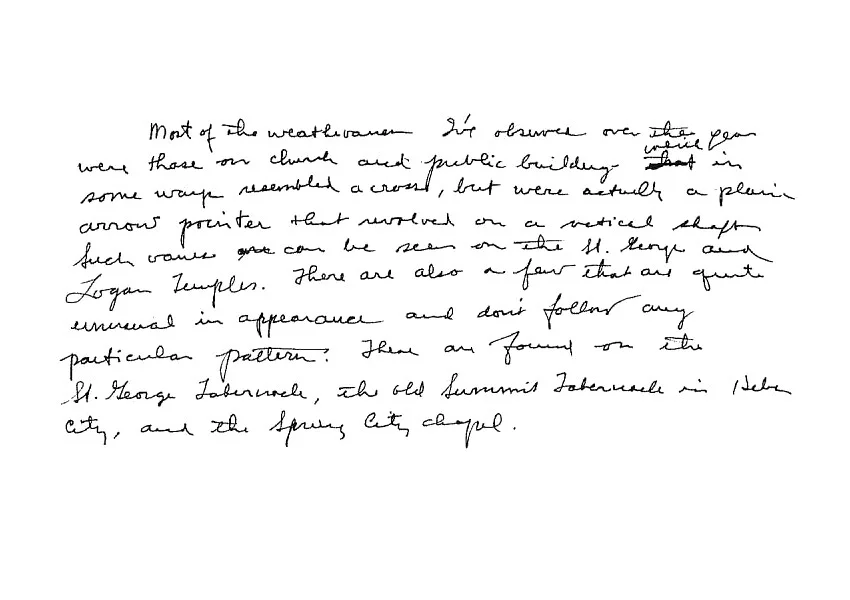 Most of the weathervanes I've observed over the years
were those on church and public buildings which in
some ways resembled a cross, but were actually a plain
arrow pointer that revolved on a vertical shaft
Such vanes can be seen on the St. George and
Logan Temples. There are also a few that are quite
unusual in appearance and don't follow any
particular pattern. These are found on the
St. George Tabernacle, the old Summit Tabernacle in Heber
City, and the Spring City chapel.